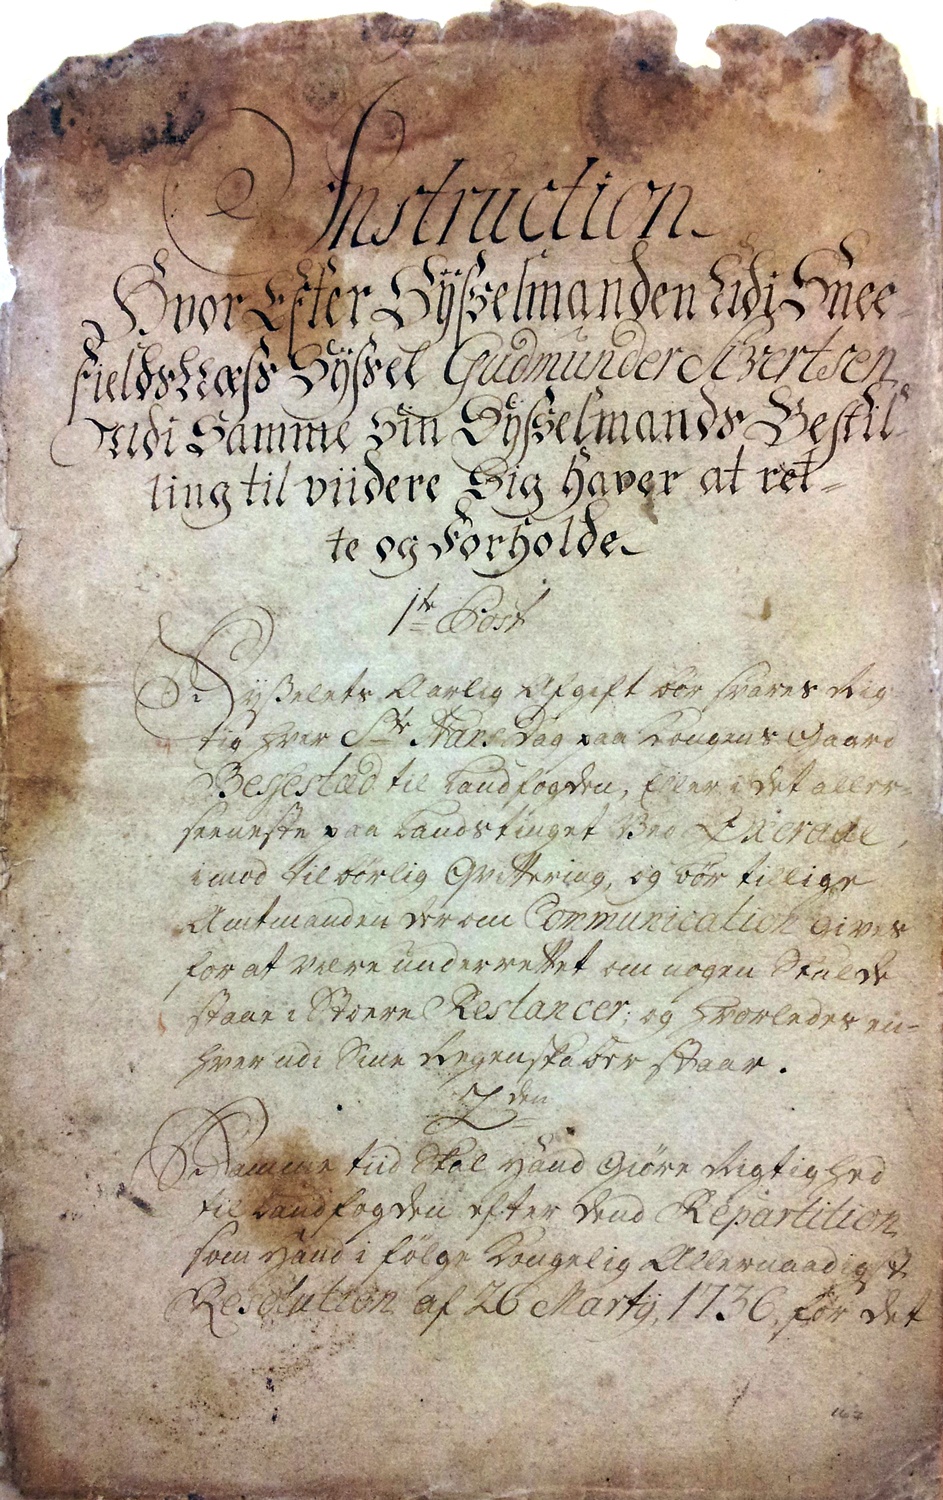 Instruction
Hvor Efter Sÿsselmanden Udj Snee-
fieldsNæss Sÿssel Gudmunder Sivertsen
Udi Samme Sin Sÿsselmands Bestil-
ling til viidere Sig haver at ret-
te og Forholde
1te Post
Syßelets Aarlig Afgift bör svares Rig
tig hver Ste Hans Dag paa Kongens Gaard
Bessested til Landfogden, Eller i det aller-
seeneste paa Landstinget Ved Öxeraae,
imod tilbörlig Qvittering, og bör tillige
Amtmanden derom Communication gives
for at være underrettet om nogen Skulde
staae i Stoere Restancer, og hvorledes en-
hver udi Sine Regenskaber staar.
2den
Samme tiid Skal Hand Giöre Rigtighed
til Landfogden efter dend Repartition
som Hand i fölge Kongelig Allernaadigst
Resolution af 26 Martÿ, 1736, for det